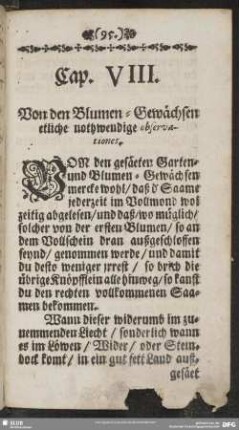 (95.)
Cap. VIII.
Von den Blumen-Gewächsen
etliche nothwendige observa-
tiones.
VON den gesäeten Garten-
und Blumen-Gewächsen
mercke wohl/ daß d' Saame
jederzeit im Vollmond wol
zeitig abgelesen/ und daß/ wo müglich/
solcher von der ersten Blumen/ so an
dem Vollschein dran außgeschlossen
seynd/ genommen werde/ und damit
du desto weniger jrrest/ so brich die
übrige Knöpfflein alle hinweg/ so kanst
du den rechten vollkommenen Saa-
men bekommen.
Wann dieser widerumb im zu-
nemmenden Liecht/ sonderlich wann
es im Löwen/ Wider/ oder Stein-
bock komt/ in ein gut fett Land auß-
gesäet
SLUB
DFG